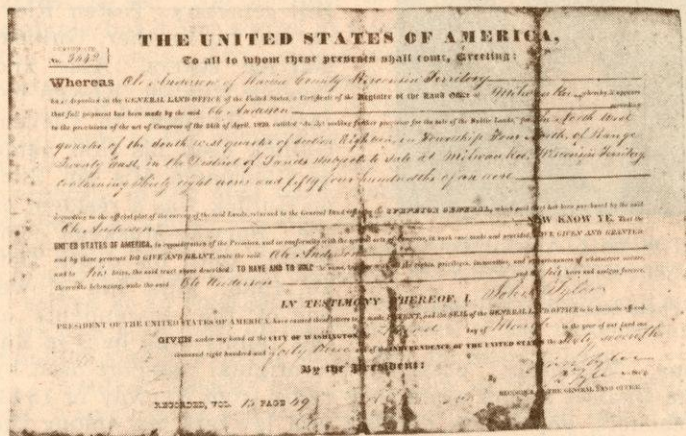 THE UNITED STATES OF AMERICA,
To all to whom these presents shall come, Greeting:
CERTIFICATE
No. 3642
Whereas Ole Anderson of Racine County Wisconsin Territory
has deposited in the GENERAL LAND OFFICE of the United States, a Certificate of the Register of the Land Office at Milwaukee whereby it appears
that full payment has been made by the said Ole Anderson according
to the provisions of the act of Congress of the 24th of April, 1820, entitled "An Act making further provision for the sale of the Public Lands," for the North West
quarter of the South West quarter of Section Eighteen, in Township Four North, of Range
Twenty East, in the District of Lands subject to sale at Milwaukee, Wisconsin Territory
containing thirty eight acres and fifty four hundredths of an acre
according to the official plat of the survey of the said Lands, returned to the General Land Office by the SURVEYOR GENERAL, which said tract has been purchased by the said
Ole Anderson NOW KNOW YE, That the
UNITED STATES OF AMERICA, in consideration of the Premises, and in conformity with the several acts of Congress, in such case made and provided, HAVE GIVEN AND GRANTED
and by these presents DO GIVE AND GRANT, unto the said Ole Anderson
and to his heirs, the said tract above described: TO HAVE AND TO HOLD the same, together with all the rights, privileges, immunities, and appurtenances of whatsoever nature,
thereunto belonging, unto the said Ole Anderson and to his heirs and assigns forever.
IN TESTIMONY WHEREOF, I, John Tyler
PRESIDENT OF THE UNITED STATES OF AMERICA, have caused these letters to be made PATENT, and the SEAL of the GENERAL LAND OFFICE to be hereunto affixed.
GIVEN under my hand at the CITY OF WASHINGTON, the day of March in the year of our Lord one
thousand eight hundred and forty three and of the INDEPENDENCE OF THE UNITED STATES the sixty seventh
By the President: John Tyler
By
RECORDED, VOL. 15 PAGE 49 RECORDER OF THE GENERAL LAND OFFICE.